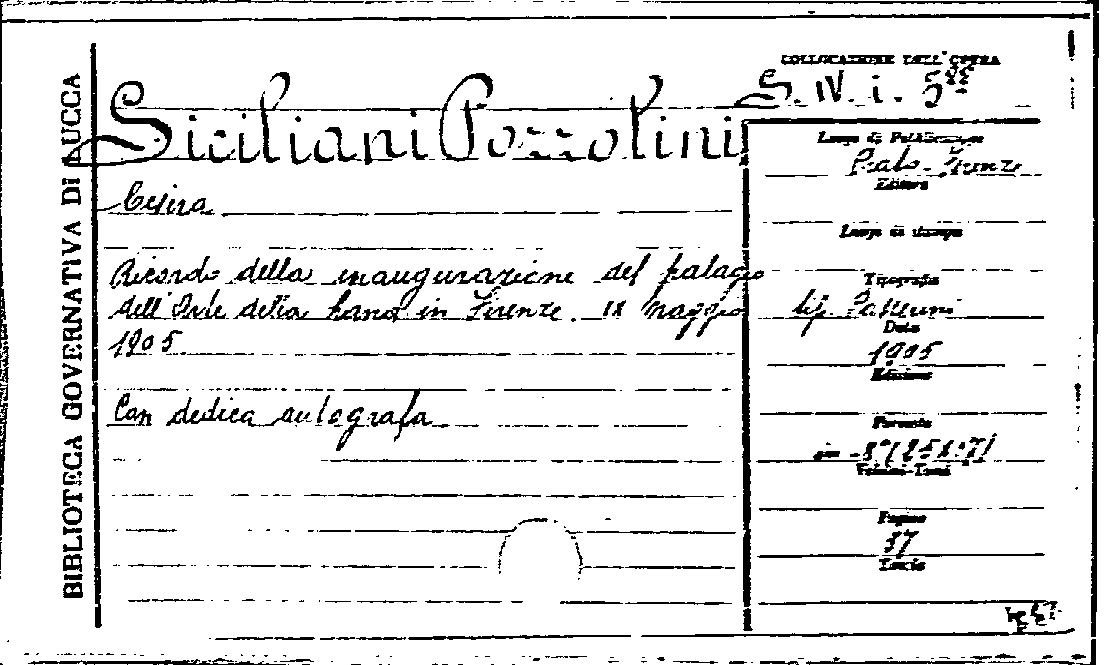 BIBLIOTECA GOVERNATIVA DI LUCCA
COLLOCAZIONE DELL'OPERA
S. IV. i. 5
Siciliani Pozzolini
Cesira
Ricordo della inaugurazione del palagio
dell'Arte della Lana in Firenze. IX Maggio
1905
Con dedica autografa
Luogo di Pubblicazione
Prato-Firenze
Editore
Luogo di stampa
Tipografia
tip. Passerini
Data
1905
Edizione
Formato
in-8°
Volumi-Tomi
Pagine
37